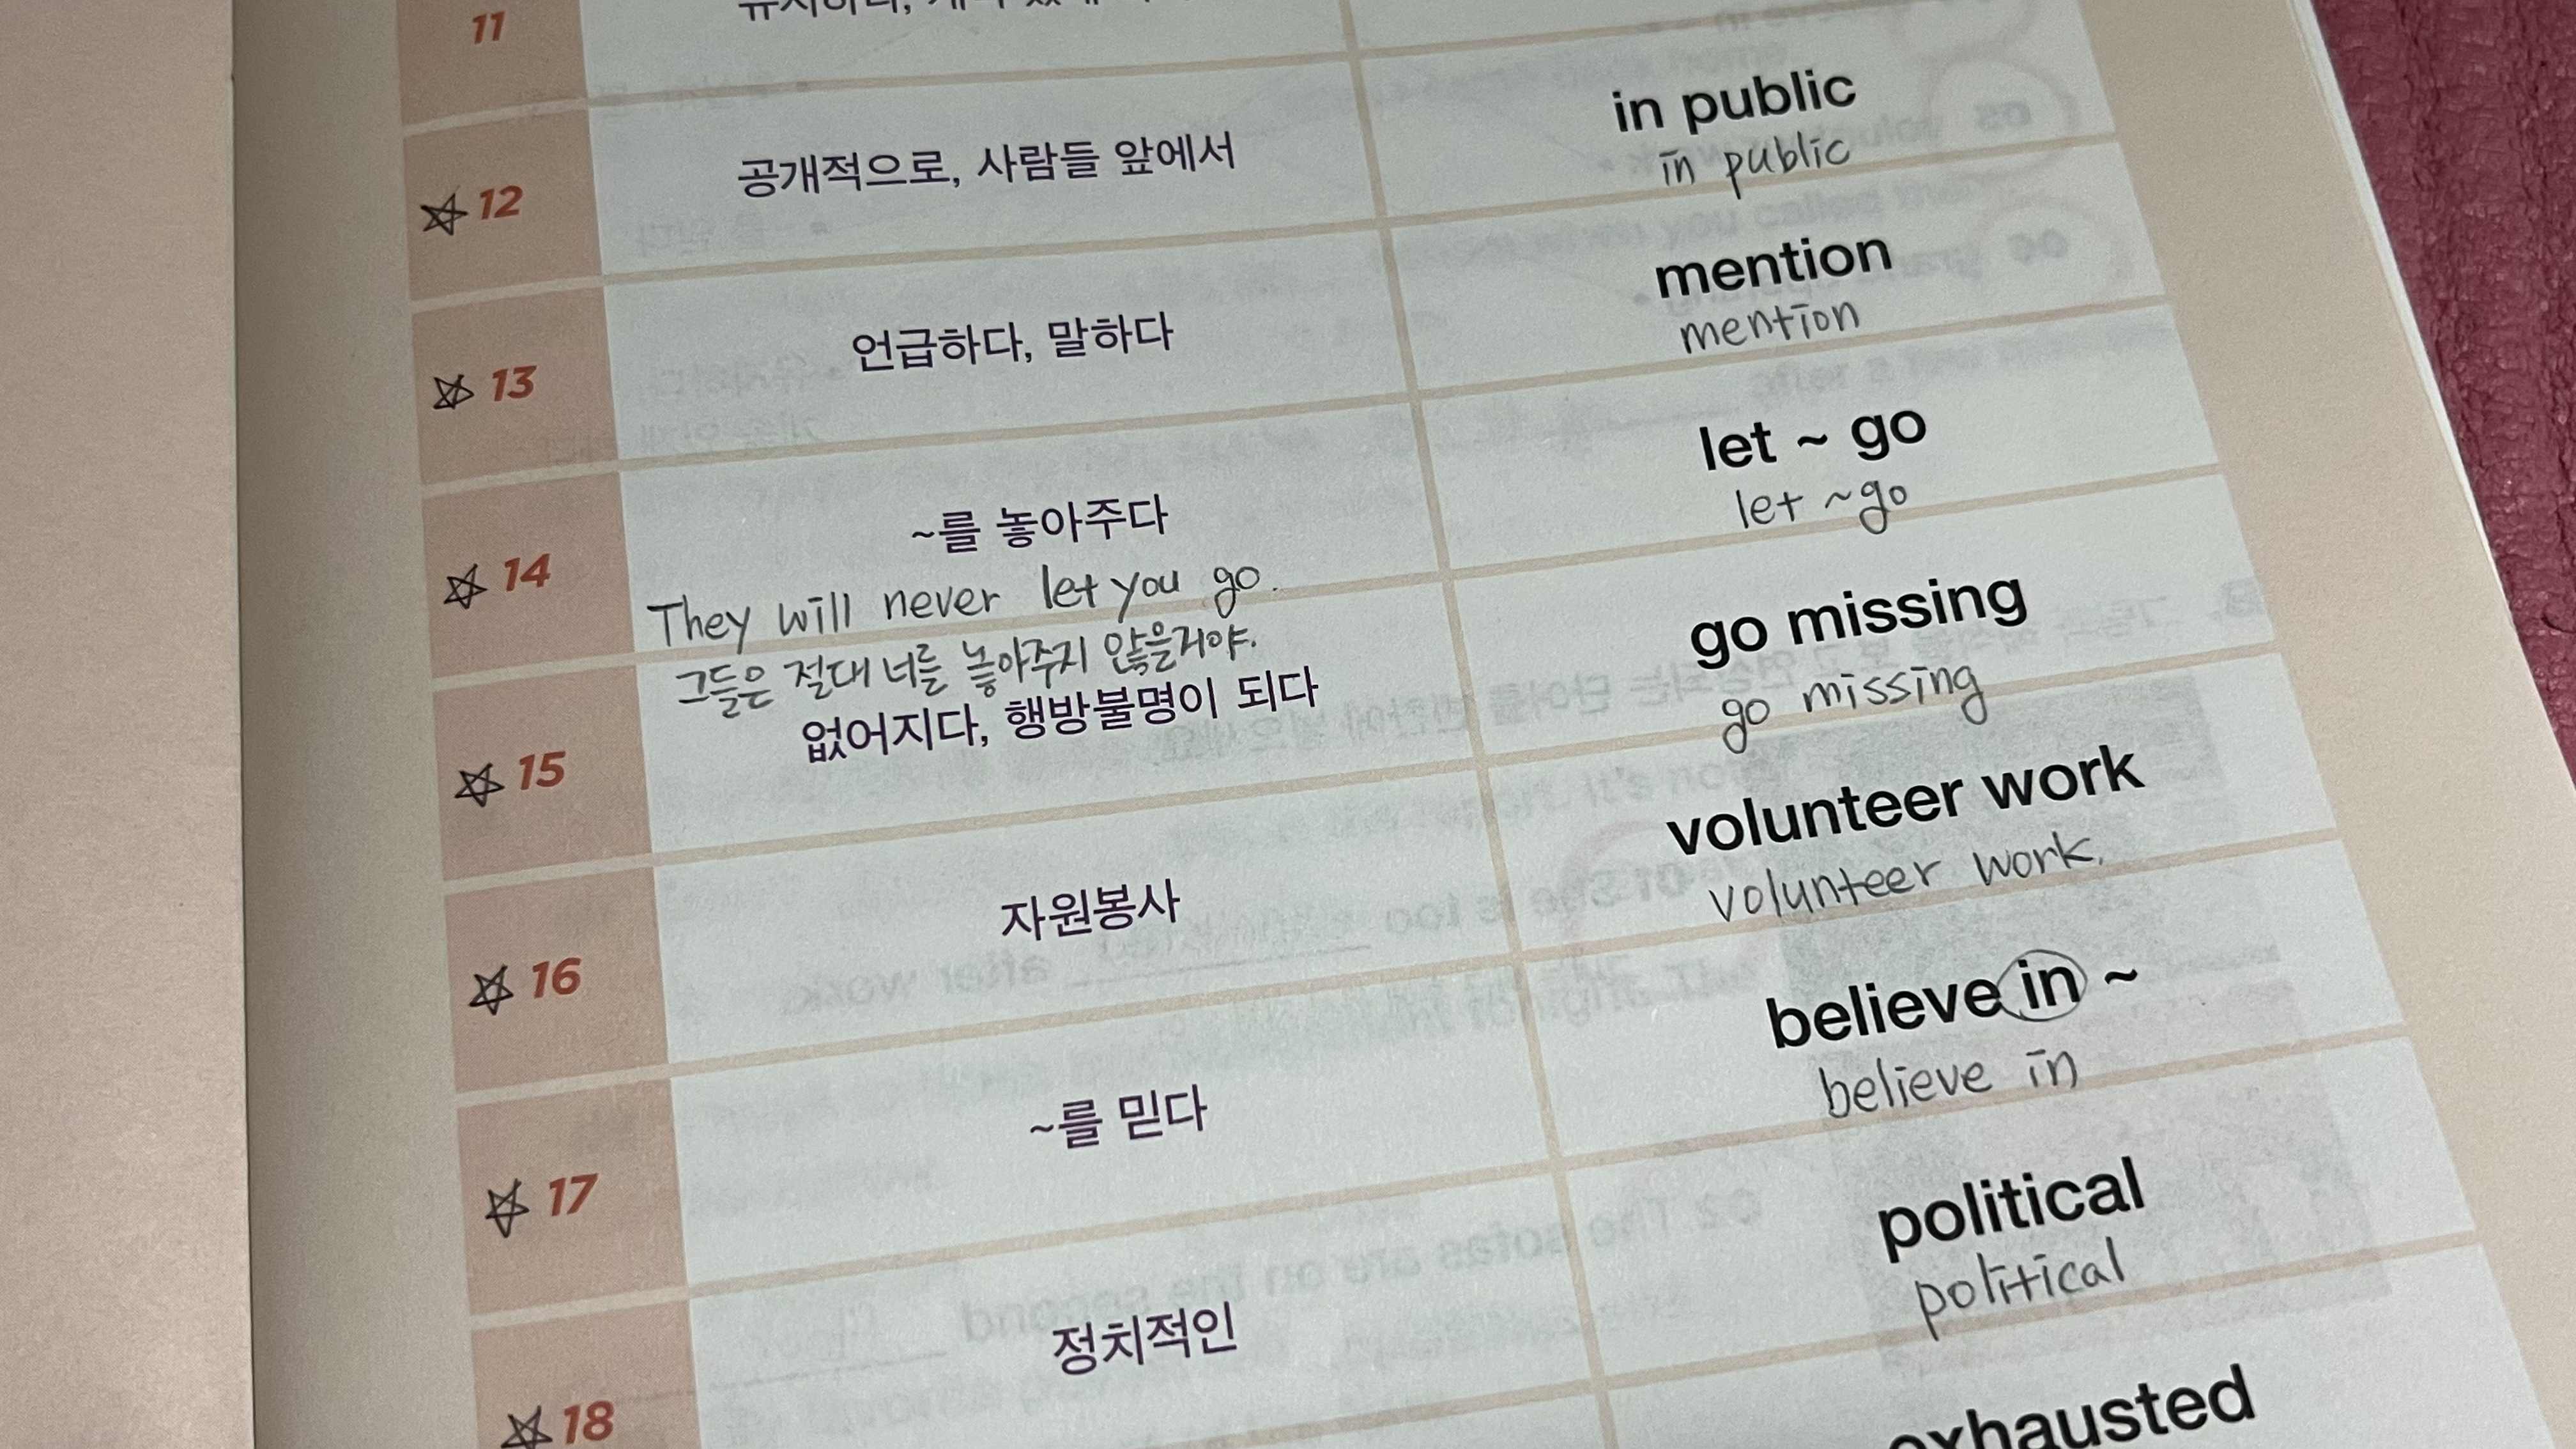 11
12 공개적으로, 사람들 앞에서 in public
in public
13 언급하다, 말하다 mention
mention
14 ~를 놓아주다 let ~ go
let ~go
They will never let you go.
그들은 절대 너를 놓아주지 않을거야.
15 없어지다, 행방불명이 되다 go missing
go missing
16 자원봉사 volunteer work
volunteer work.
17 ~를 믿다 believe in ~
believe in
18 정치적인 political
political
exhausted